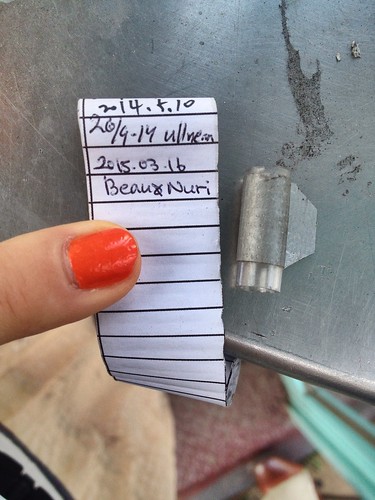 2014.5.10
20/9-14 ullnean
2015.03.16
Beau&Nuri